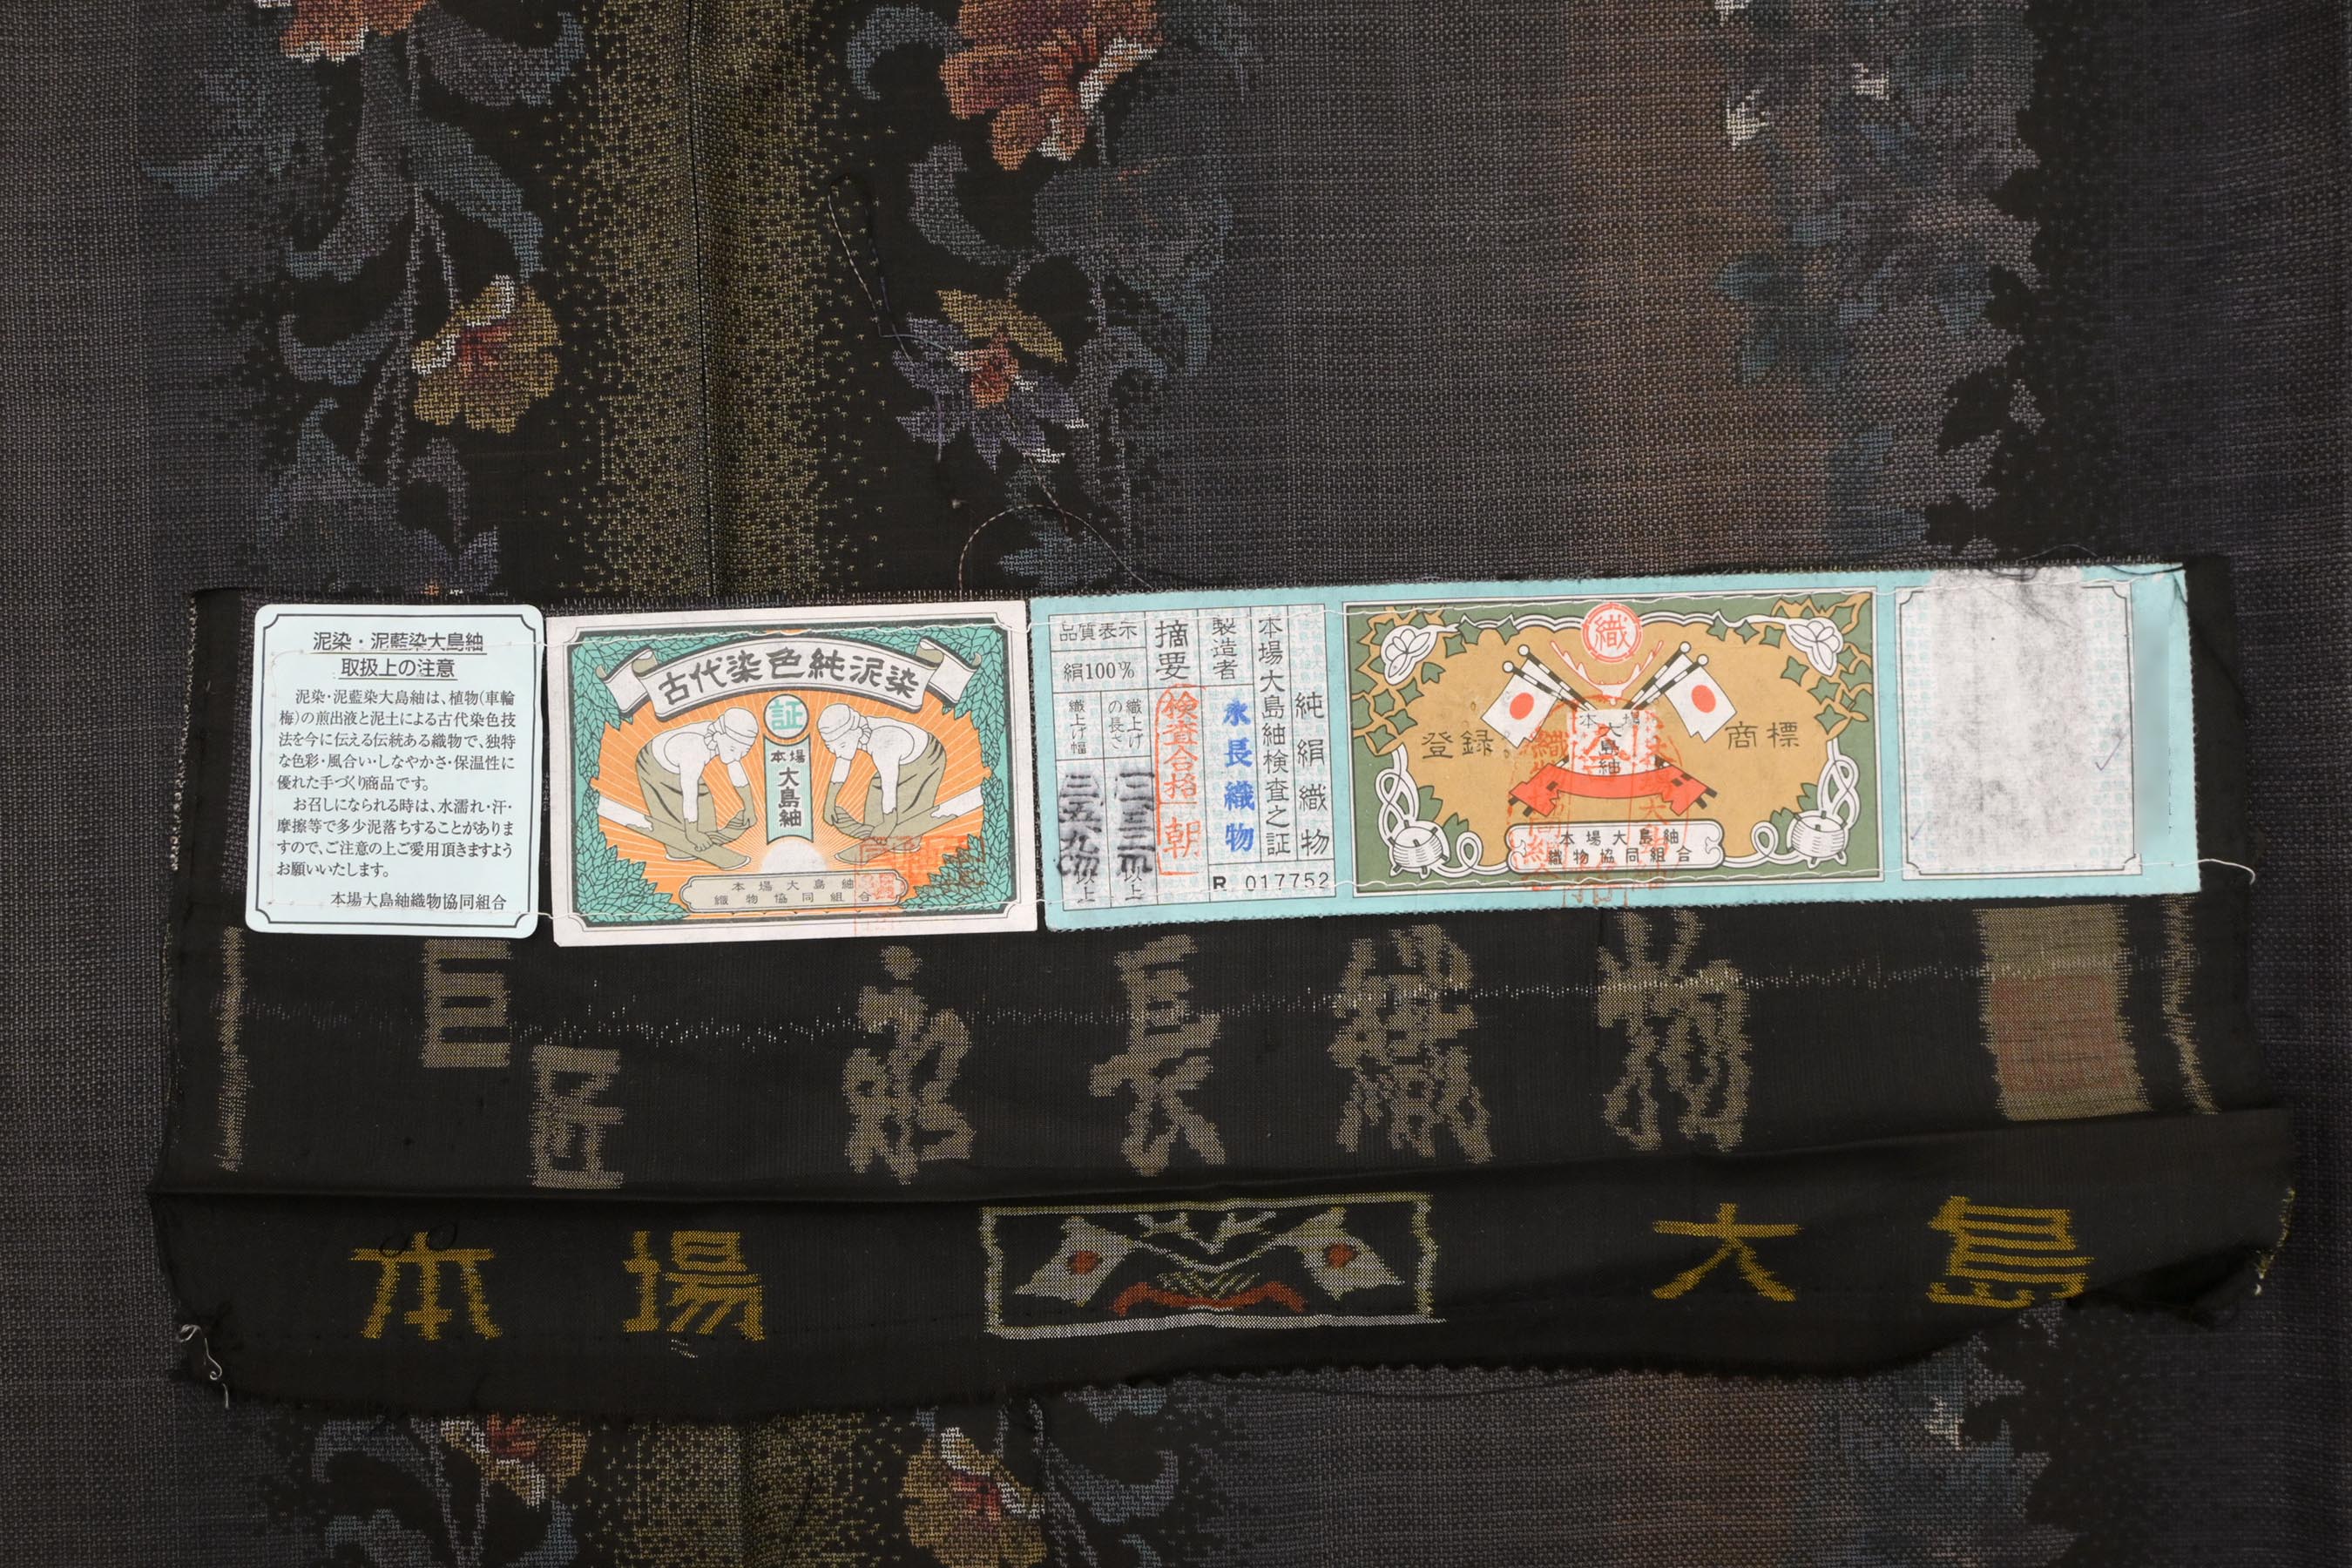 泥染・泥藍染大島紬
取扱上の注意
泥染・泥藍染大島紬は、植物(車輪
梅)の煎出液と泥土による古代染色技
法を今に伝える伝統ある織物で、独特
な色彩・風合い・しなやかさ・保温性に
優れた手づくり商品です。
お召しになられる時は、水濡れ・汗・
摩擦等で多少泥落ちすることがありま
すので、ご注意の上ご愛用頂きますよう
お願いいたします。
本場大島紬織物協同組合
古代染色純泥染
証
本場
大島紬
本場大島紬
織物協同組合
純絹織物
本場大島紬検査之証
製造者
永長織物
摘要
検査合格
朝
品質表示
絹100%
織上げ
の長さ
以上
織上げ幅
以上
R 017752
織
登録
商標
本場
大島紬
本場大島紬
織物協同組合
巨匠
永長織物
本場
大島